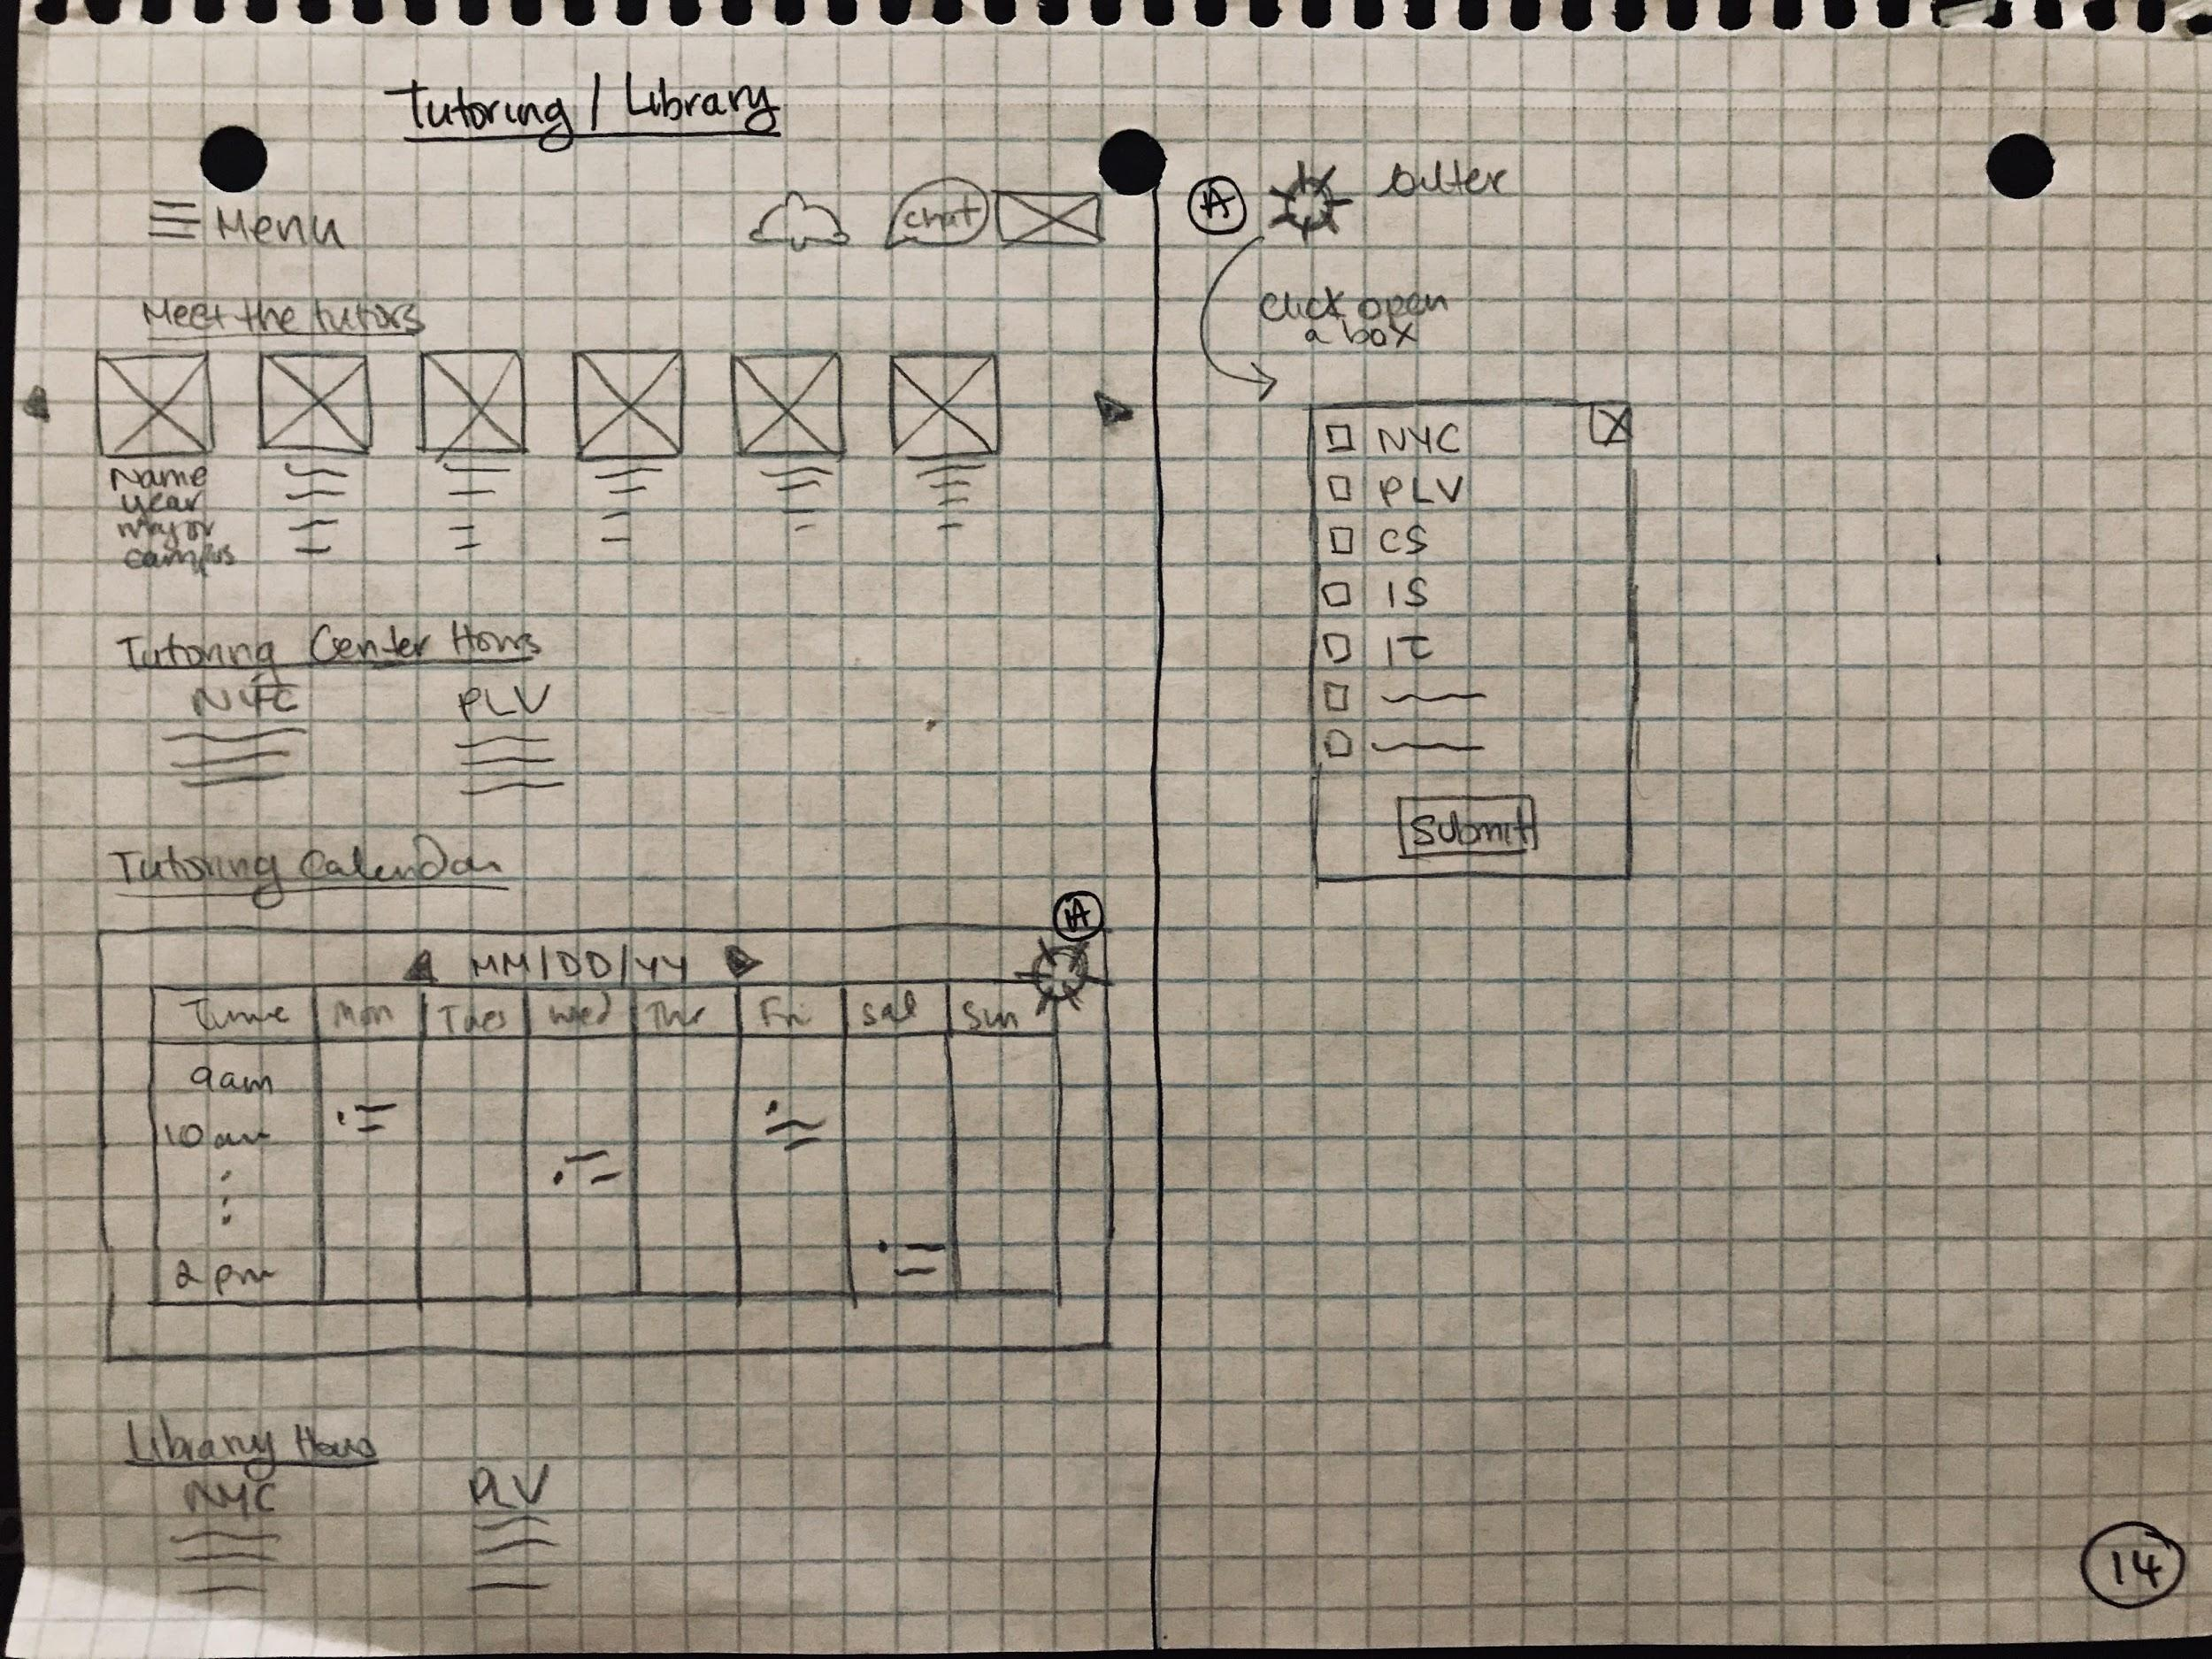 Tutoring / Library
Menu
chat
Meet the tutors
Name
year
major
campus
Tutoring Center Hours
NYC PLV
Tutoring Calendar
A
MM/DD/YY
Time Mon Tues Wed Thr Fri Sat Sun
9am
10am
2pm
Library Hours
NYC PLV
A
click open
a box
X
NYC
PLV
CS
IS
IT
Submit
14